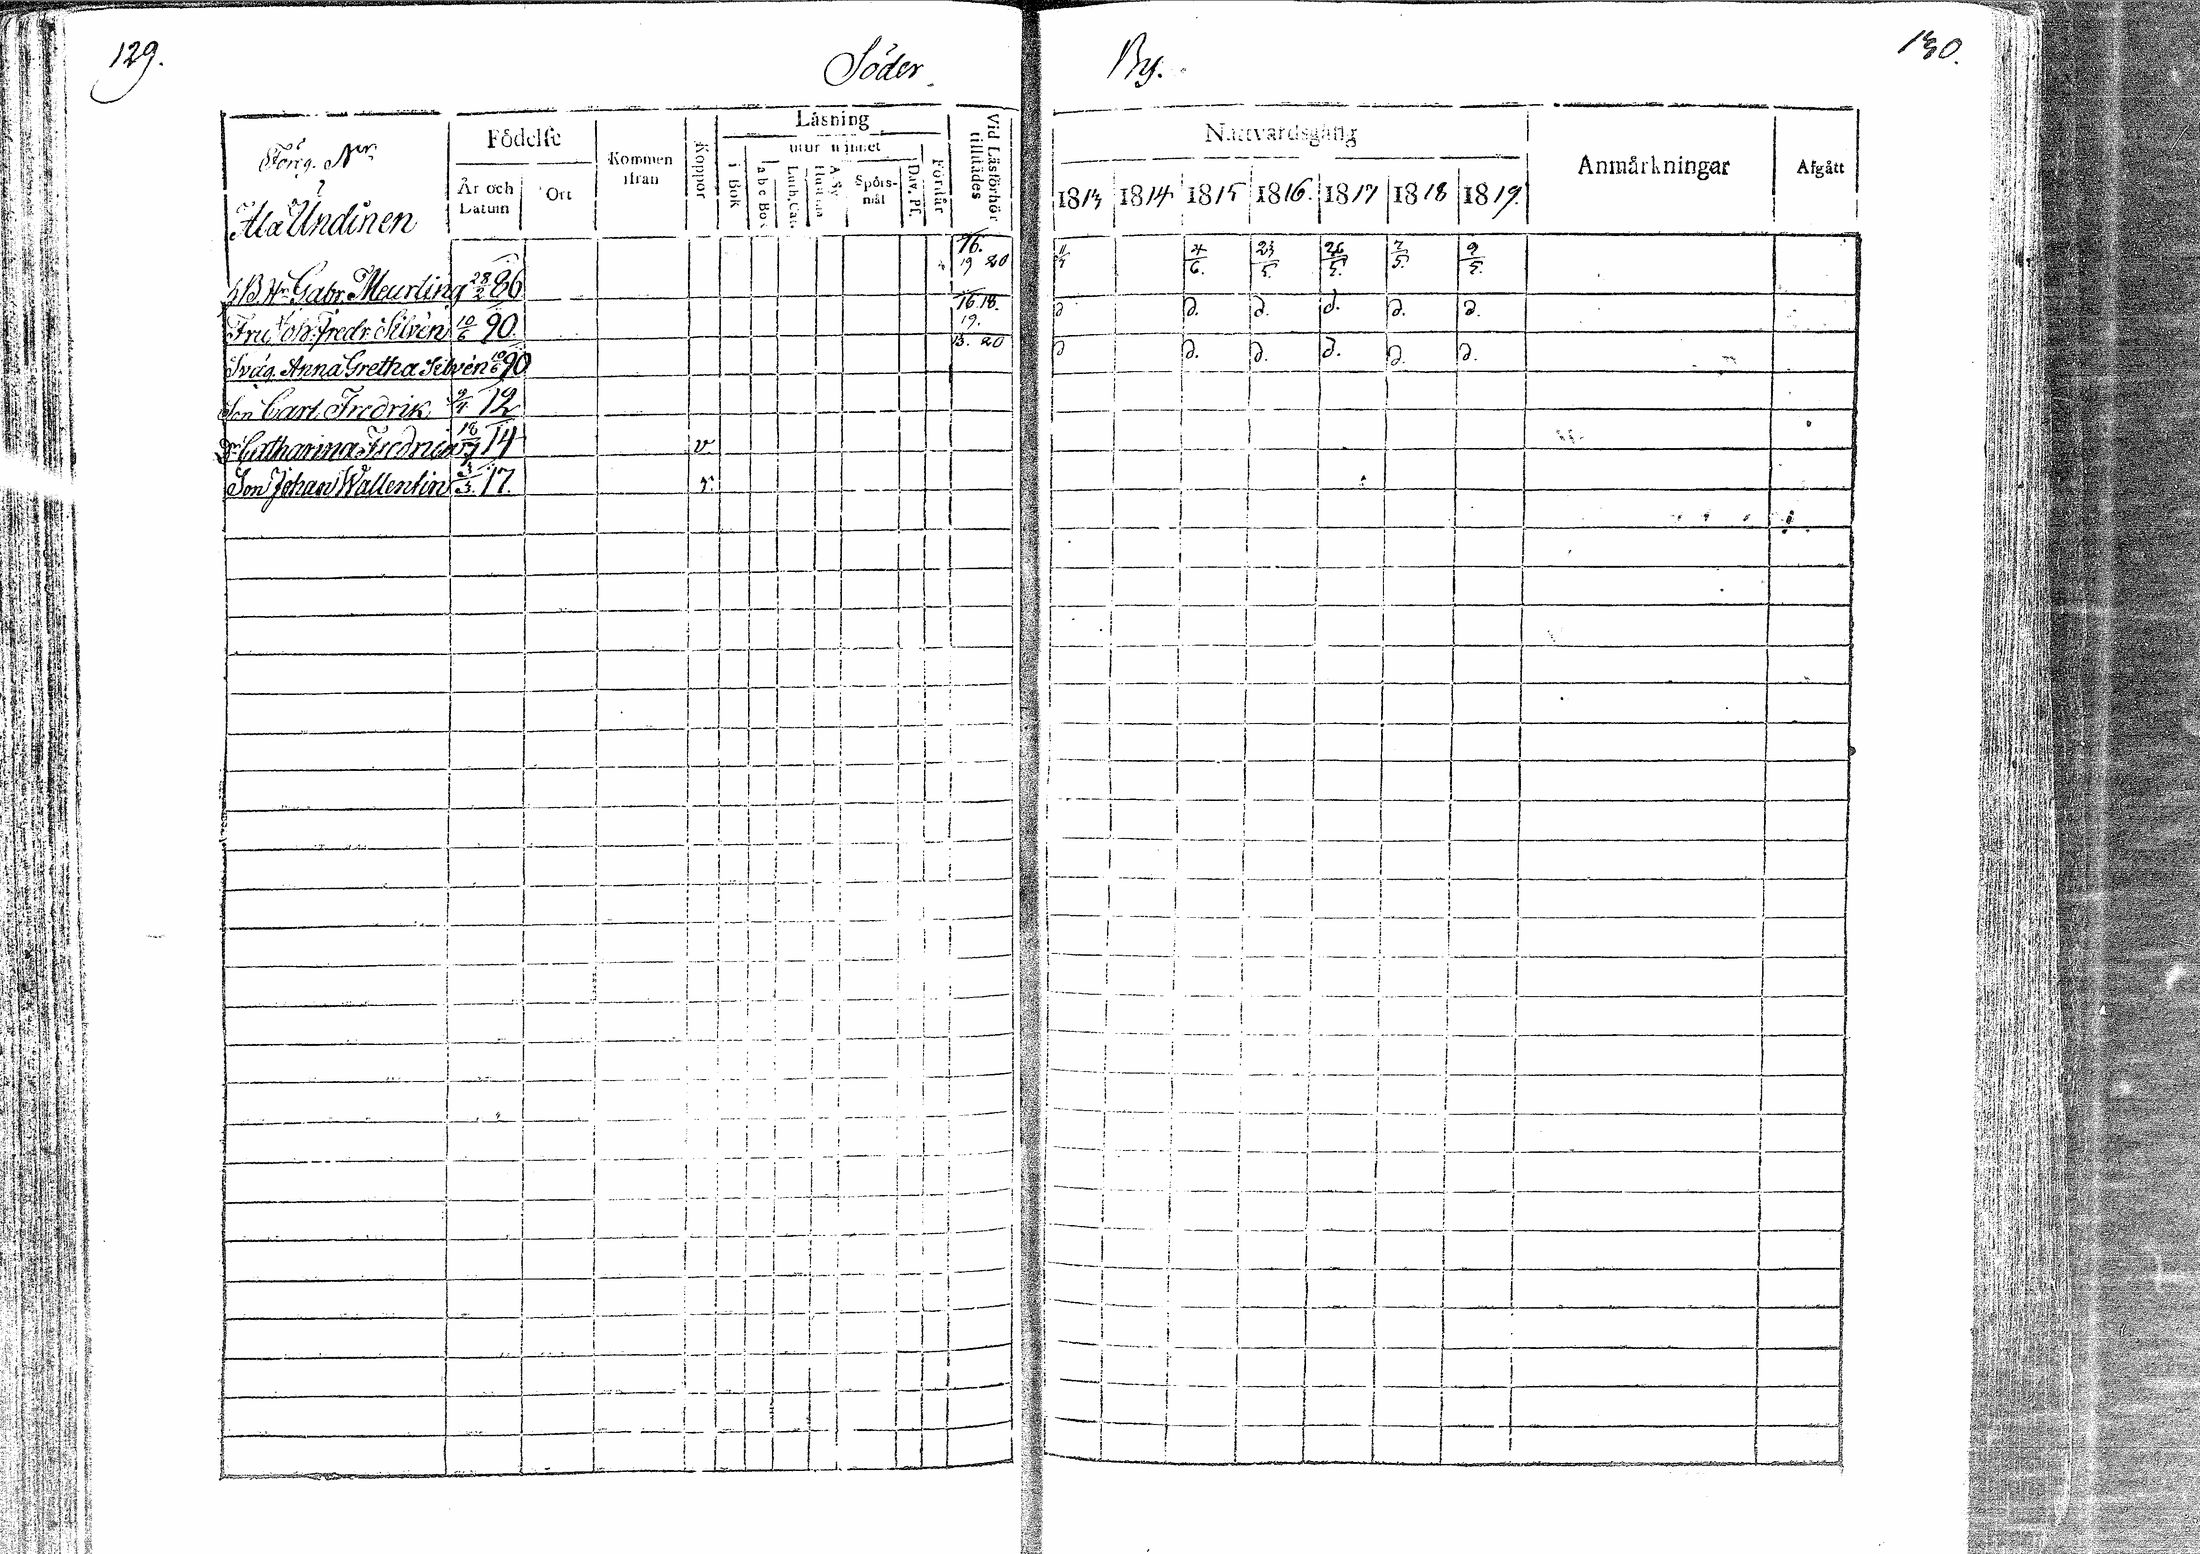 129.
Söder
By.
130.
Förig. Nr
7
Ala Undinen
Födelse
År och Datum
Ort
Kommen ifrån
Koppor
Låsning
utur minnet
i Bok
a b c Bok
Luth. Cat.
Spörsmål
Dav. Ps.
Förstår
Vid Läsförhör tillstädes
Nattvardsgång
1813 1814 1815 1816. 1817 1818 1819.
Anmärkningar
Afgått
Hr Gabr. Meurling 28/2 86 16. 19 20 4/6. 23/5. 26/5. 7/5. 9/5.
Fru Joh. Fredr. Silvén 10/6 90. 16. 18. 19. d d. d. d. d. d.
Sväg. Anna Gretha Silvén 10/6 90 13. 20 d d. d. d. d. d.
Son Carl Fredrik 9/4 12
Dr Catharina Fredrica 14 v
Son Johan Wallentin 3/3. 17.